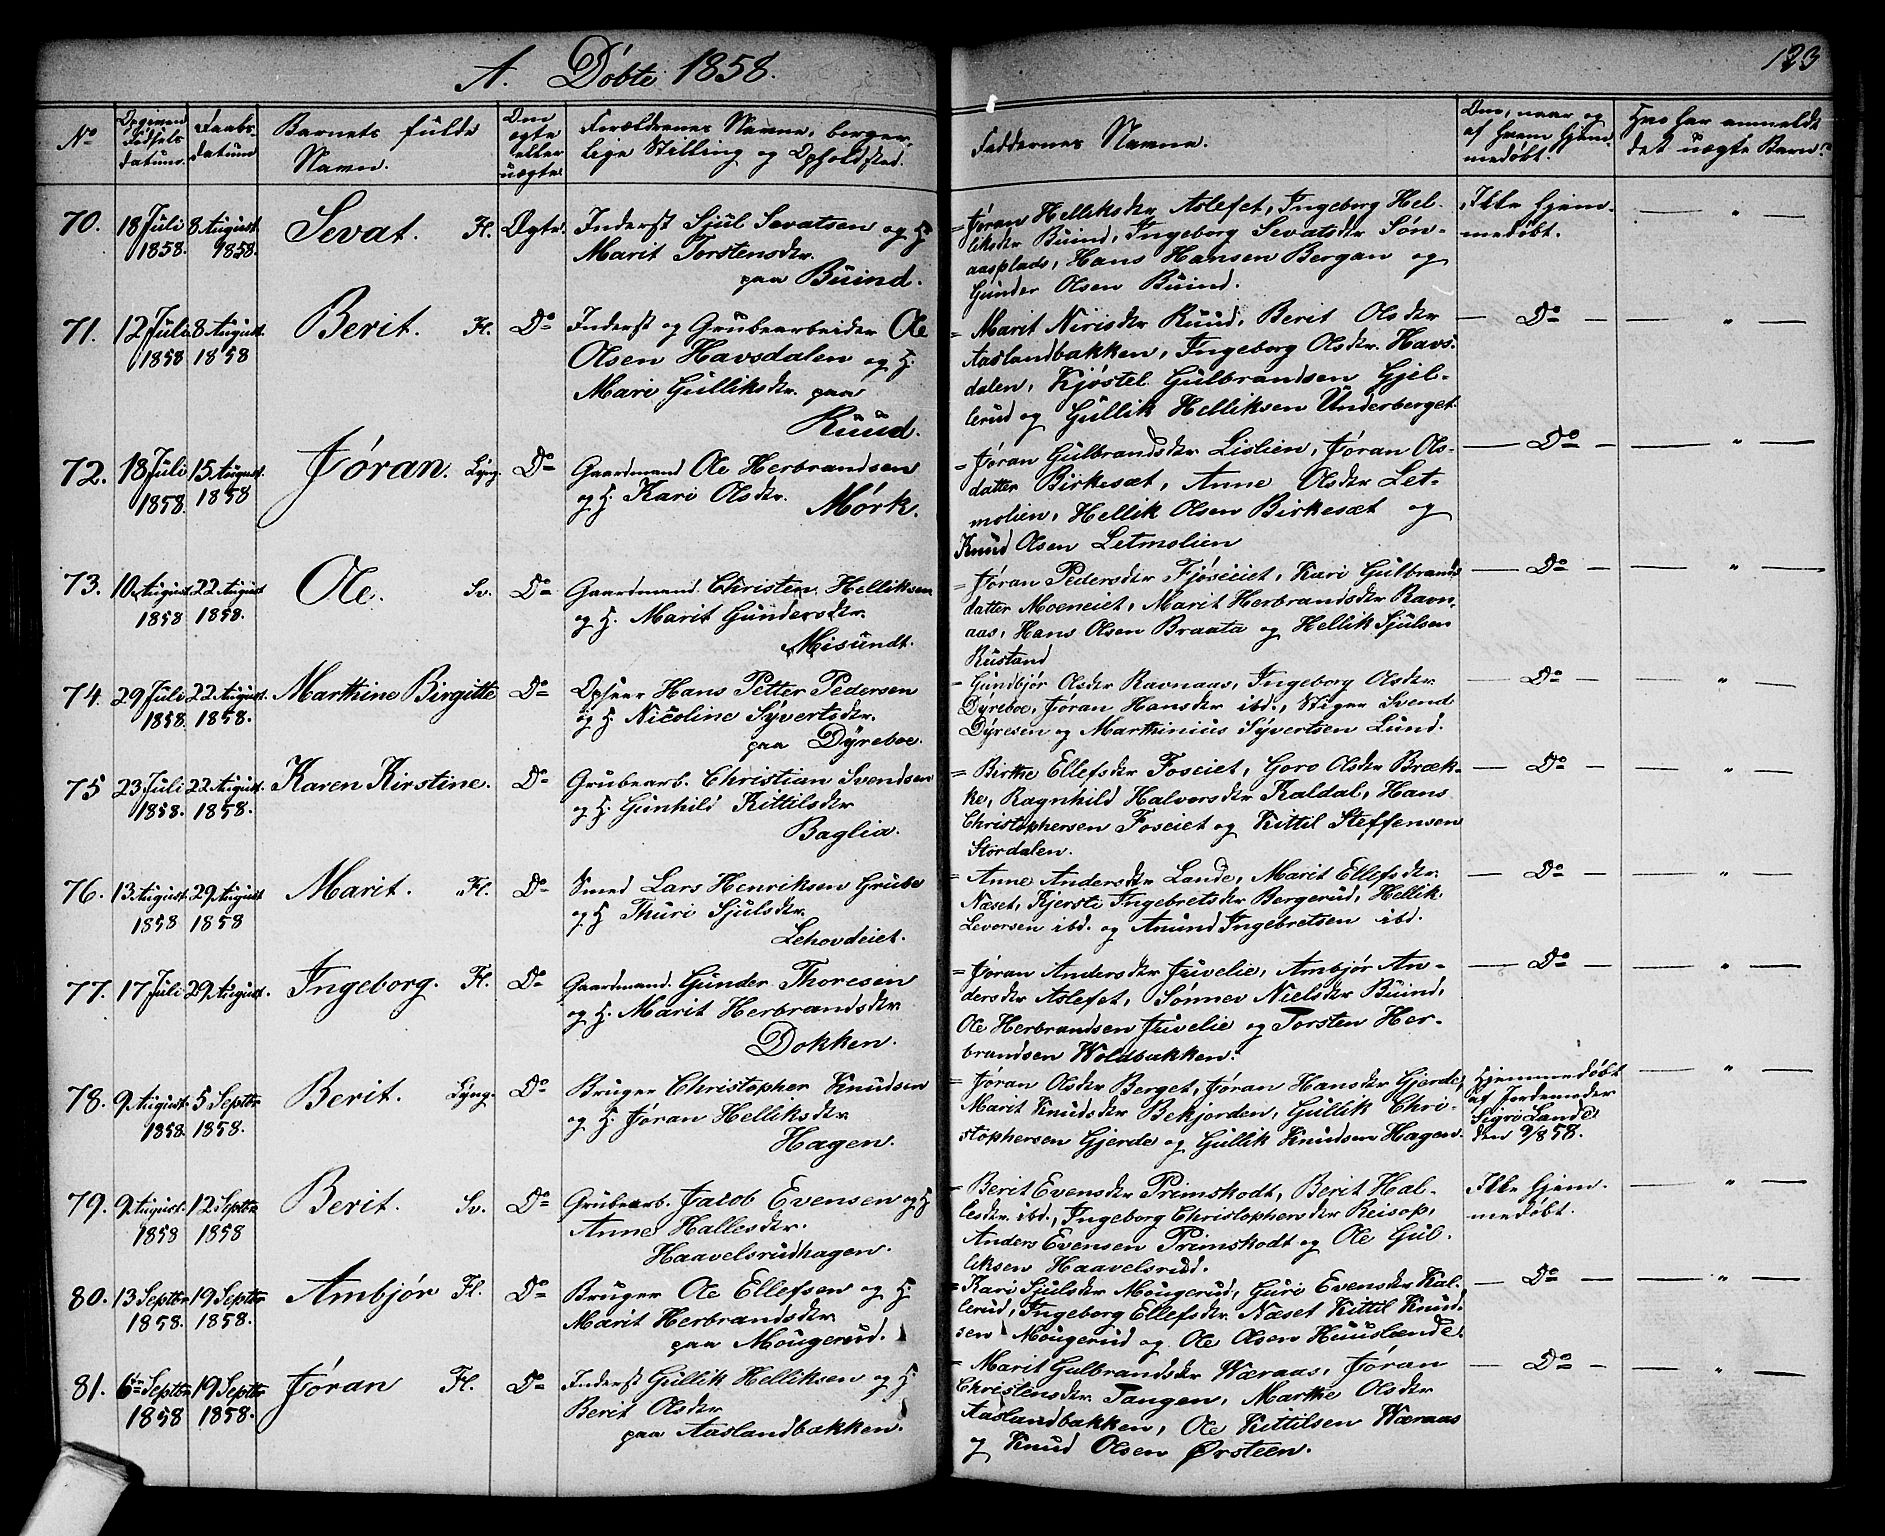 A. Döbte 1858.
123
No
Opgiven Fødsels datum.
Daabs-datum
Barnets fulde Navn.
Om ægte eller uægte
Forældrenes Navne, borgerlige Stilling og Opholdssted.
Faddernes Navne.
Om, naar og af hvem hjemmedøbt.
Hvo har anmeldt det uægte Barn?
70. 18 Juli 1858. 8 August 1858. Sevat. Fl. Ægte.
Inderst Sjul Sevatsen og H.
Marit Torstensdr.
paa Buind.
= Jøran Helliksdr Aslefet, Ingeborg Hel-
liksdr Buind, Ingeborg Sevatsdr Søn-
aasplads, Hans Hansen Bergan og
Gunder Olsen Buind.
Ikke hjem-
medøbt.
— " —
71. 12 Juli 1858 8 August 1858 Berit. Fl. Do
Inderst og Grubearbeider Ole
Olsen Havsdalen og H.
Mari Gulliksdr. paa
Ruud.
= Marit Nirisdr Ruud, Berit Olsdr
Aaslandbakken, Ingeborg Olsdr. Havs-
dalen, Kjøstel Gulbrandsen Gjel-
lerud og Gullik Helliksen Underberget.
— Do —
— " —
72. 18 Juli 1858. 15 August. 1858 Jøran. Lyng. Do
Gaardmand Ole Herbrandsen
og H. Kari Olsdr.
Mørk.
= Jøran Gulbrandsdr Lislien, Jøran Ols-
datter Birkesæt, Anne Olsdr Let-
molien, Hellik Olsen Birkesæt og
Knud Olsen Letmolien
— Do —
— " —
73. 10 August 1858 22 August 1858. Ole. Sv. Do
Gaardmand Christen Helliksen
og H. Marit Gundersdr.
Misundt.
= Jøran Pedersdr Fjøseiet, Kari Gulbrands
datter Moeneiet, Marit Herbrandsdr Ravn-
aas, Hans Olsen Braata og Hellik Sjulsen
Rustand
— Do —
— " —
74. 29 Juli 1858. 22 August. 1858. Marthine Birgitte Do
Opseer Hans Petter Pedersen
og H. Nicoline Syvertsdr.
paa Dyreboe.
= Gundbjør Olsdr Ravnaas, Ingeborg Olsdr
Dyreboe, Jøran Hansdr ibd., Stiger Svend
Dyresen og Marthinius Syvertsen Lund.
— Do —
— " —
75 23 Juli 1858. 22 August. 1858. Karen Kirstine. Do
Grubearb. Christian Svendsen
og H. Gunhild Kittilsdr
Baglia.
= Birthe Ellefsdr Foseiet, Goro Olsdr Bræk-
ke, Ragnhild Halvorsdr Kaldal, Hans
Christophersen Foseiet og Kittil Steffensen
Stordalen.
— Do —
— " —
76. 13 August. 1858 29 August 1858 Marit. Fl. Do
Smed Lars Henriksen Grube
og H Thuri Sjulsdr.
Lehovdeiet.
= Anne Andersdr Lande, Marit Ellefsdr.
Næset, Kjersti Ingebretsdr Bergerud, Hellik
Levorsen ibd. og Anund Ingebretsen ibd.
— Do —
— " —
77. 17 Juli 29 August. Ingeborg. Fl. Do
Gaardmand. Gunder Thoresen
og H. Marit Herbrandsdr.
Dokken.
= Jøran Andersdr Juvelie, Ambjør An-
dersdr Aslefet, Sønnev Nielsdr Buind,
Ole Herbrandsen Juvelie og Torsten Her-
brandsen Woldbakken.
— Do —
— " —
78. 9 August. 1858. 5 Septbr 1858. Berit. Lyng. Do
Bruger Christopher Knudsen
og H. Jøran Helliksdr
Hagen.
= Jøran Olsdr Berget, Jøran Hansdr Gjerde,
Marit Knudsdr Bekjorden, Gullik Chri-
stophersen Gjerde og Gullik Knudsen Hagen.
Hjemmedøbt
af Jordemoder
Sigri Lande
den 9/8 58.
— " —
79. 9 August. 1858 12 Septbr 1858 Berit. Sv. Do
Grubearb. Jacob Evensen og H
Anne Hallesdr.
Haavelsrudhagen.
= Berit Evensdr Primskodt, Berit Hal-
lesdr. ibd., Ingeborg Christophersdr Reisop,
Anders Evensen Primskodt og Ole Gul-
liksen Haavelsrud.
Ikke hjem-
medøbt.
— " —
80. 13 Septbr 1858. 19 Septbr 1858. Ambjør Fl. Do
Bruger Ole Ellefsen og H.
Marit Herbrandsdr
paa Mougerud.
= Kari Sjulsdr Mougerud, Guri Evensdr Kal-
lerud, Ingeborg Ellefsdr. Næset Kittil Knud-
sen Mougerud og Ole Olsen Huuslænde.
— Do —
— " —
81. 6te Septbr 1858 19 Septbr 1858. Jøran Fl. Do
Inderst Gullik Helliksen og H
Berit Olsdr
paa Aaslandbakken.
= Marit Gulbrandsdr Væraas, Jøran
Christensdr. Tangen, Marthe Olsdr
Aaslandbakken, Ole Kittilsen Væraas
og Knud Olsen Ørsteen.
— Do —
— " —